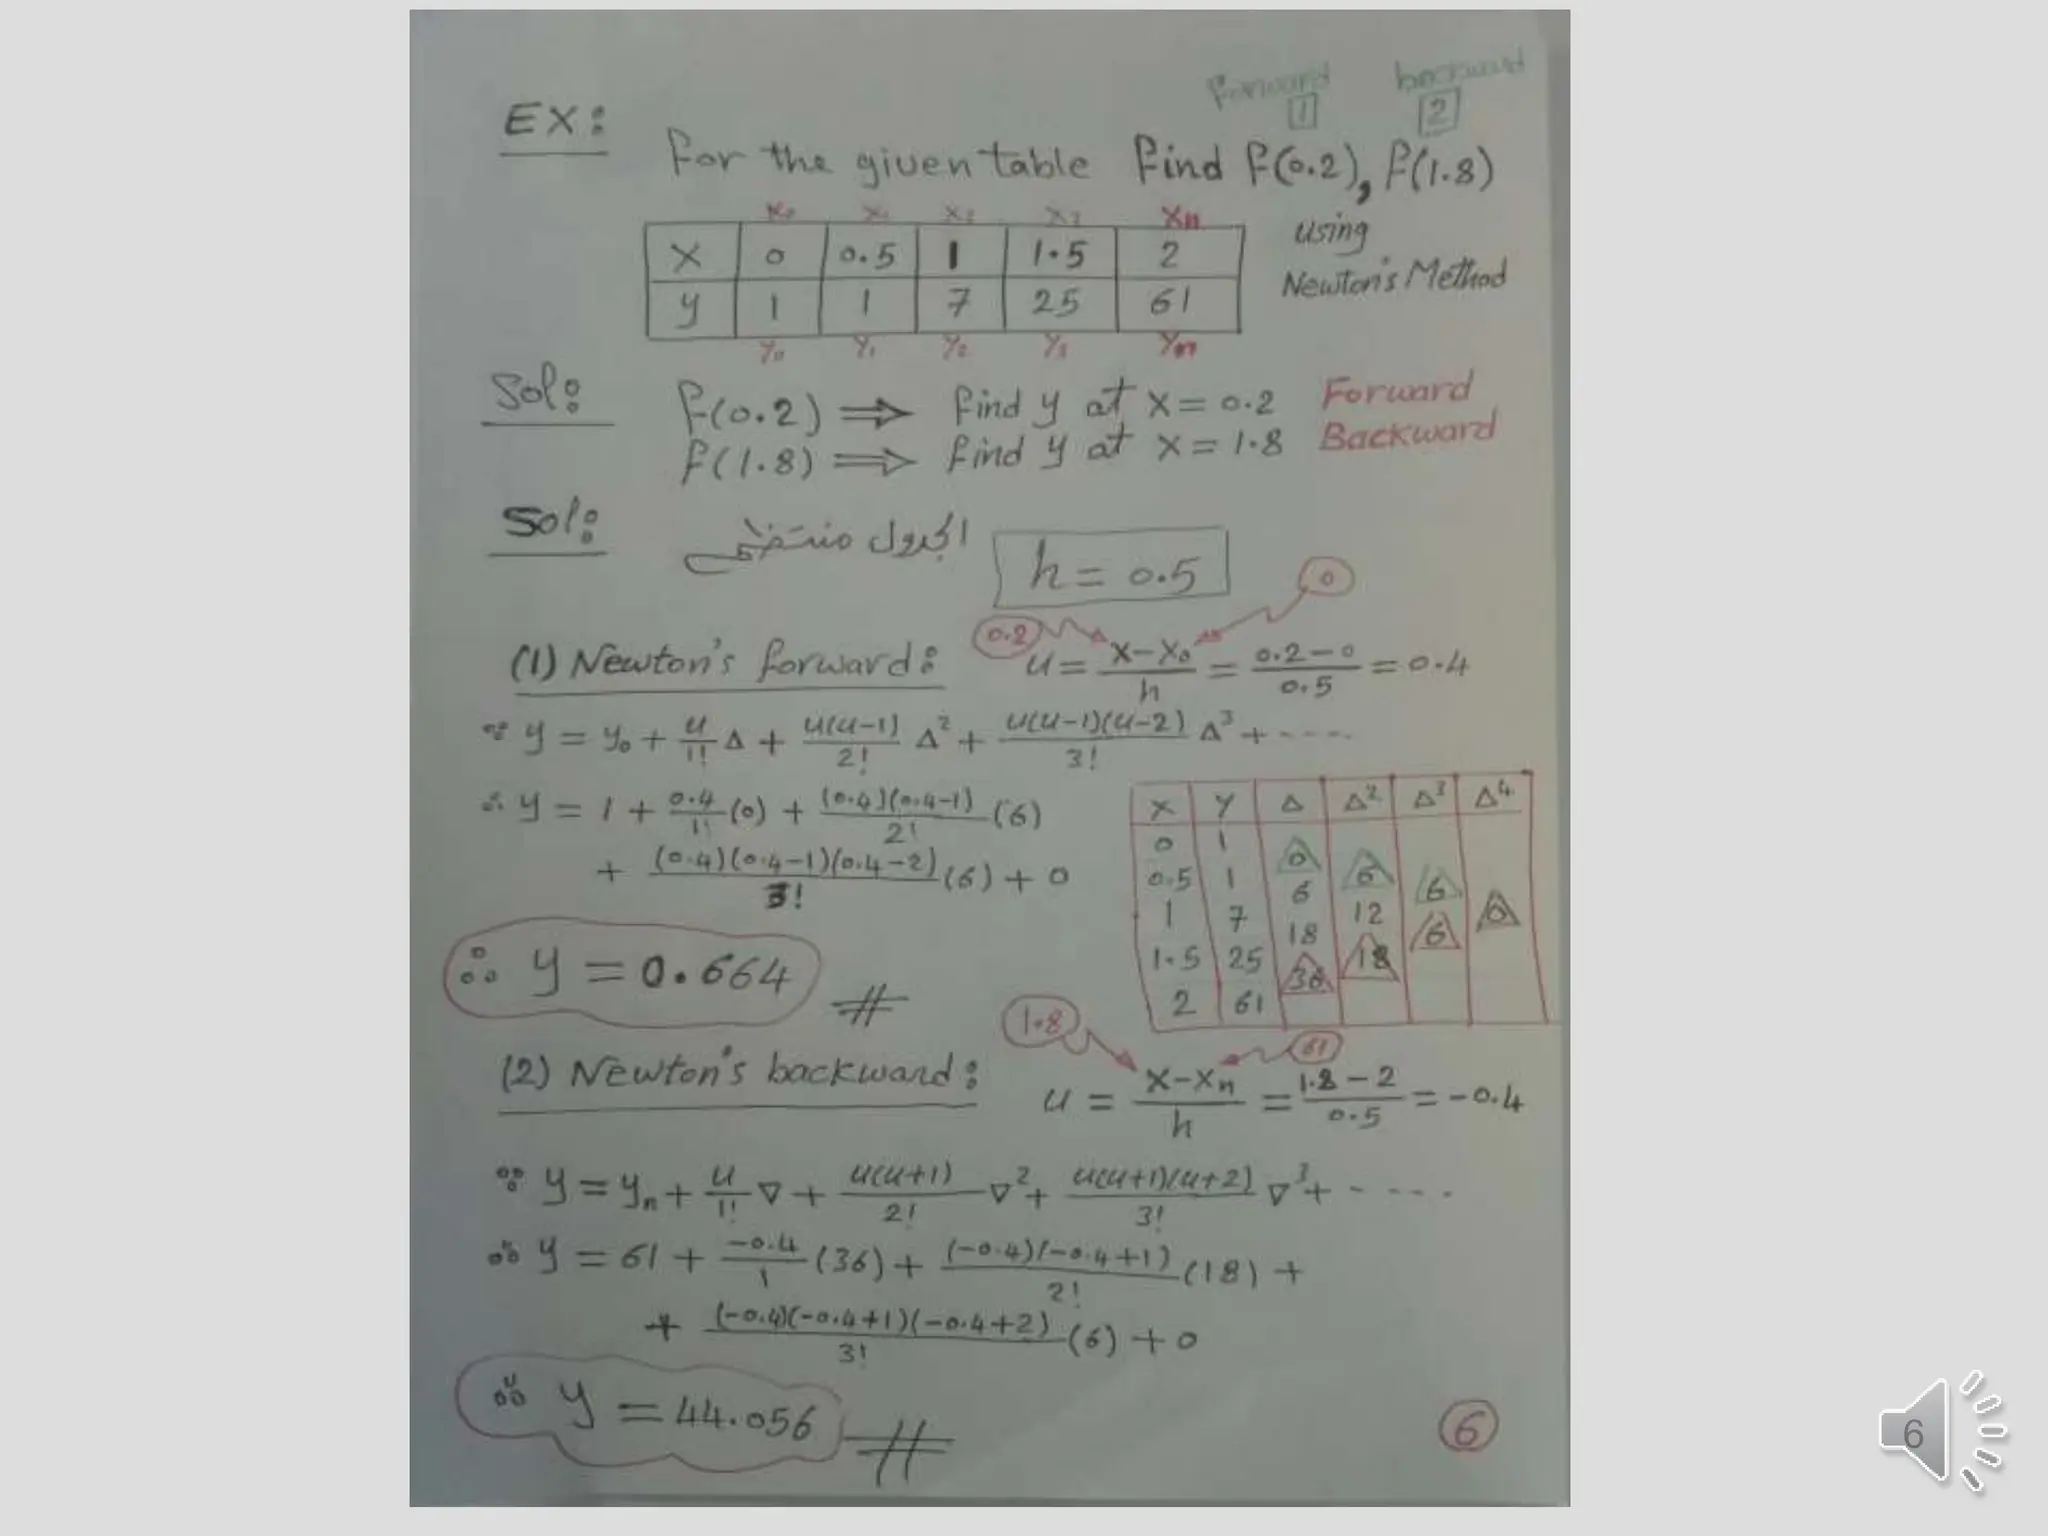 forward backward
1 2
EX:
For the given table find f(0.2), f(1.8)
using
Newton's Method
x₀ x₁ x₂ x₃ xn
x 0 0.5 1 1.5 2
y 1 1 7 25 61
y₀ y₁ y₂ y₃ yn
Sol: f(0.2) ⇒ find y at x = 0.2 Forward
f(1.8) ⇒ find y at x = 1.8 Backward
Sol: الجدول منتظم h = 0.5
0.2 0
(1) Newton's forward: u = (x-x₀)/h = (0.2-0)/0.5 = 0.4
∵ y = y₀ + u/1! Δ + u(u-1)/2! Δ² + u(u-1)(u-2)/3! Δ³ + ....
∴ y = 1 + 0.4/1! (0) + (0.4)(0.4-1)/2! (6)
+ (0.4)(0.4-1)(0.4-2)/3! (6) + 0
∴ y = 0.664
x y Δ Δ² Δ³ Δ⁴
0 1
0
0.5 1 6
6 6
1 7 12 0
18 6
1.5 25 18
36
2 61
1.8 61
(2) Newton's backward: u = (x-xn)/h = (1.8-2)/0.5 = -0.4
∵ y = yn + u/1! ∇ + u(u+1)/2! ∇² + u(u+1)(u+2)/3! ∇³ + .....
∴ y = 61 + -0.4/1 (36) + (-0.4)(-0.4+1)/2! (18) +
+ (-0.4)(-0.4+1)(-0.4+2)/3! (6) + 0
∴ y = 44.056
6
6